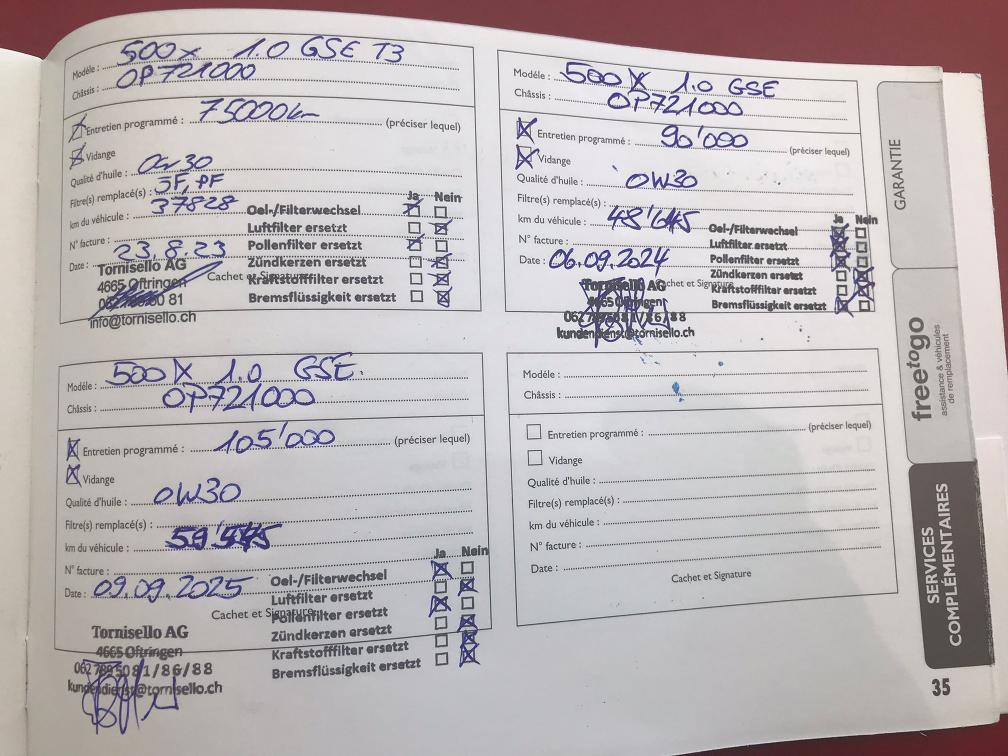 Modèle : 500x 1.0 GSE T3
Châssis : OP721000
Entretien programmé : 75000km (préciser lequel)
Vidange
Qualité d'huile : 0w30
Filtre(s) remplacé(s) : JF, PF
km du véhicule : 37828
N° facture :
Date : 23.8.23
Cachet et Signature
Ja Nein
Oel-/Filterwechsel
Luftfilter ersetzt
Pollenfilter ersetzt
Zündkerzen ersetzt
Kraftstofffilter ersetzt
Bremsflüssigkeit ersetzt
Tornisello AG
4665 Oftringen
81
info@tornisello.ch
Modèle : 500X 1.0 GSE
Châssis : OP721000
Entretien programmé : 90'000 (préciser lequel)
Vidange
Qualité d'huile : 0W30
Filtre(s) remplacé(s) :
km du véhicule : 48'645
N° facture :
Date : 06.09.2024
Cachet et Signature
Ja Nein
Oel-/Filterwechsel
Luftfilter ersetzt
Pollenfilter ersetzt
Zündkerzen ersetzt
Kraftstofffilter ersetzt
Bremsflüssigkeit ersetzt
Tornisello AG
4665 Oftringen
062 /86/88
kundendienst@tornisello.ch
Modèle : 500X 1.0 GSE.
Châssis : OP721000
Entretien programmé : 105'000 (préciser lequel)
Vidange
Qualité d'huile : 0W30
Filtre(s) remplacé(s) :
km du véhicule :
N° facture :
Date : 09.09.2025
Cachet et Signature
Ja Nein
Oel-/Filterwechsel
Luftfilter ersetzt
Pollenfilter ersetzt
Zündkerzen ersetzt
Kraftstofffilter ersetzt
Bremsflüssigkeit ersetzt
Tornisello AG
4665 Oftringen
062 81/86/88
kundendienst@tornisello.ch
Modèle :
Châssis :
Entretien programmé : (préciser lequel)
Vidange
Qualité d'huile :
Filtre(s) remplacé(s) :
km du véhicule :
N° facture :
Date :
Cachet et Signature
GARANTIE
freetogo
assistance & véhicules
de remplacement
SERVICES
COMPLÉMENTAIRES
35